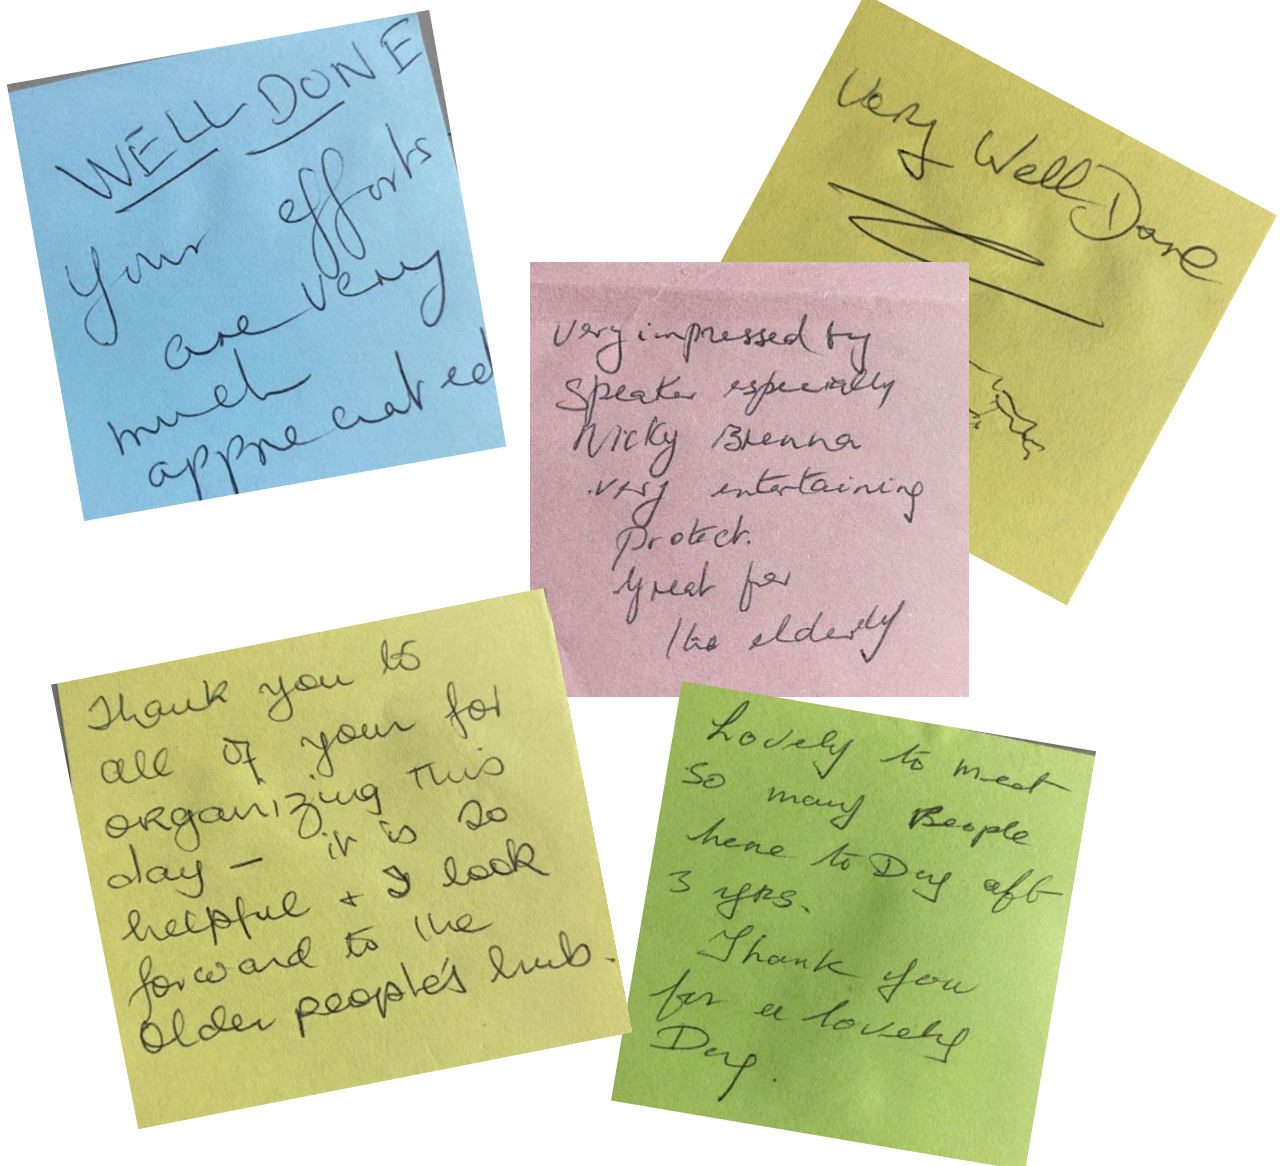 WELL DONE
Your efforts
are very
much
appreciated
Very Well Done
Very impressed by
Speaker especially
Nicky Brenna
very entertaining
protect.
Great for
the elderly
Thank you to
all of your for
organizing This
day – it is so
helpful + I look
forward to the
Older people's hub.
Lovely to meet
So many People
here to Day aft
3 yrs.
Thank you
for a lovely
Day.